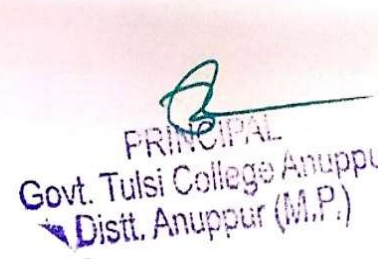 PRINCIPAL
Govt. Tulsi College Anuppu
Distt. Anuppur (M.P.)